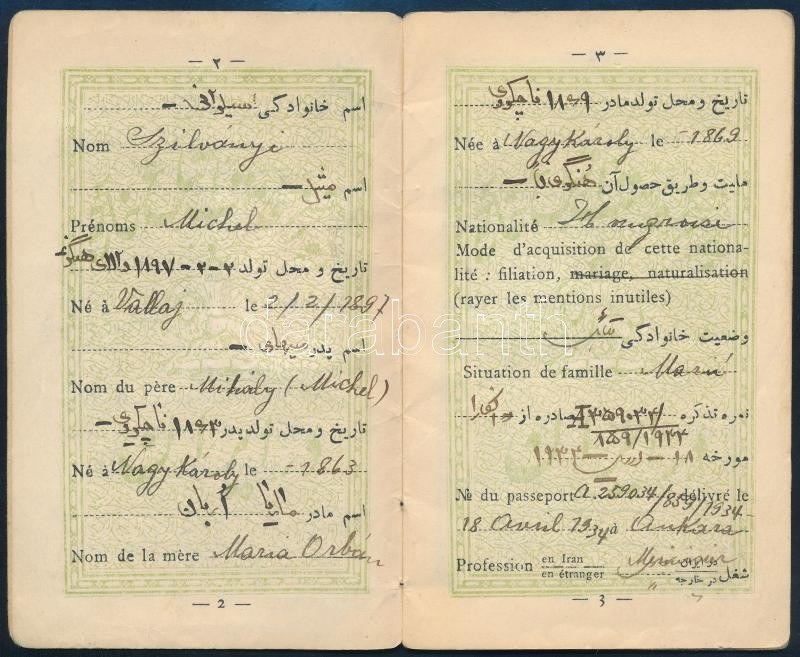 — ۲ —
اسم خانوادگی
Nom Szilványi
اسم میشل —
Prénoms Michel
تاریخ و محل تولد ۲-۲-۱۸۹۷
Né à Vallaj le 2/2/1897
اسم پدر میهای —
Nom du père Mihály (Michel)
تاریخ و محل تولد پدر ۱۸۶۳
Né à Nagy Károly le -1863
اسم مادر ماریا اربان
Nom de la mère Maria Orbán
— 2 —
— ۳ —
تاریخ و محل تولد مادر ۱۸۶۹
Née à Nagy Károly le -1869
ملیت و طریق حصول آن
Nationalité Hongroise
Mode d'acquisition de cette nationa-
lité : filiation, mariage, naturalisation
(rayer les mentions inutiles)
وضعیت خانوادگی
Situation de famille Marié
نمره تذکره A ۲۵۹۰۳۴/ صادره از
۸۵۹/۱۹۳۴
مورخه ۱۸ - آوریل - ۱۹۳۴
№ du passeport A.259034/859/1934 délivré le
18 Avril 1934 à Ankara
Profession en Iran در ایران
en étranger شغل در خارجه
— 3 —
galeria savaria
darabanth